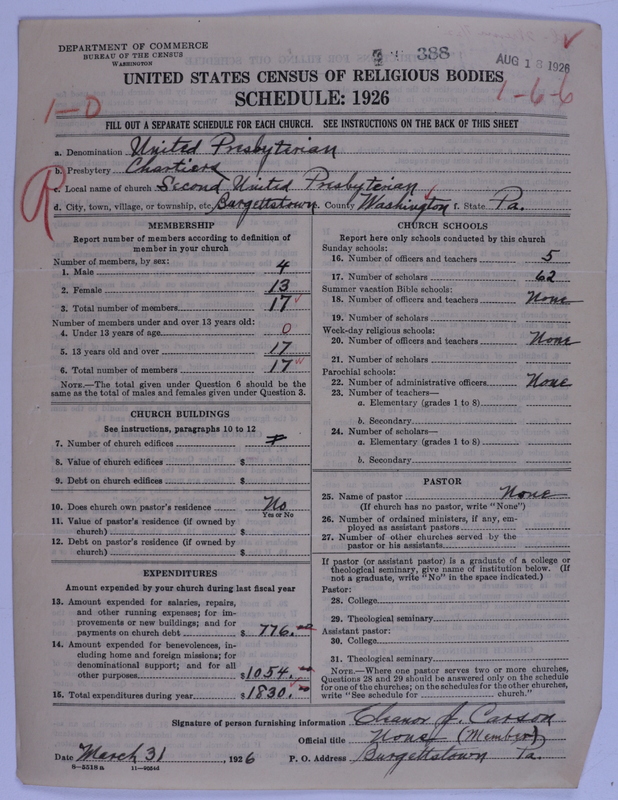 DEPARTMENT OF COMMERCE
BUREAU OF THE CENSUS
WASHINGTON
388
AUG 18 1926
UNITED STATES CENSUS OF RELIGIOUS BODIES
SCHEDULE: 1926
1-0
1-6-6
FILL OUT A SEPARATE SCHEDULE FOR EACH CHURCH. SEE INSTRUCTIONS ON THE BACK OF THIS SHEET
a. Denomination United Presbyterian
b. Presbytery Chartiers
c. Local name of church Second United Presbyterian
d. City, town, village, or township, etc. Burgettstown. County Washington f. State Pa.
MEMBERSHIP
Report number of members according to definition of
member in your church
Number of members, by sex:
1. Male 4
2. Female 13
3. Total number of members 17
Number of members under and over 13 years old:
4. Under 13 years of age 0
5. 13 years old and over 17
6. Total number of members 17
NOTE.—The total given under Question 6 should be the
same as the total of males and females given under Question 3.
CHURCH BUILDINGS
See instructions, paragraphs 10 to 12
7. Number of church edifices
8. Value of church edifices $
9. Debt on church edifices $
10. Does church own pastor's residence No
Yes or No
11. Value of pastor's residence (if owned by
church) $
12. Debt on pastor's residence (if owned by
church) $
EXPENDITURES
Amount expended by your church during last fiscal year
13. Amount expended for salaries, repairs,
and other running expenses; for im-
provements or new buildings; and for
payments on church debt $ 776.
14. Amount expended for benevolences, in-
cluding home and foreign missions; for
denominational support; and for all
other purposes $ 1054.
15. Total expenditures during year $ 1830.
CHURCH SCHOOLS
Report here only schools conducted by this church
Sunday schools:
16. Number of officers and teachers 5
17. Number of scholars 62
Summer vacation Bible schools:
18. Number of officers and teachers None
19. Number of scholars
Week-day religious schools:
20. Number of officers and teachers None
21. Number of scholars
Parochial schools:
22. Number of administrative officers None
23. Number of teachers—
a. Elementary (grades 1 to 8)
b. Secondary
24. Number of scholars—
a. Elementary (grades 1 to 8)
b. Secondary
PASTOR
25. Name of pastor None
(If church has no pastor, write "None")
26. Number of ordained ministers, if any, em-
ployed as assistant pastors
27. Number of other churches served by the
pastor or his assistants
If pastor (or assistant pastor) is a graduate of a college or
theological seminary, give name of institution below. (If
not a graduate, write "No" in the space indicated.)
Pastor:
28. College
29. Theological seminary
Assistant pastor:
30. College
31. Theological seminary
NOTE.—Where one pastor serves two or more churches,
Questions 28 and 29 should be answered only on the schedule
for one of the churches; on the schedules for the other churches,
write "See schedule for church."
Signature of person furnishing information Eleanor J. Carson
Official title None (Member)
Date March 31, 1926 P. O. Address Burgettstown Pa.
8-5518a 11-9054d